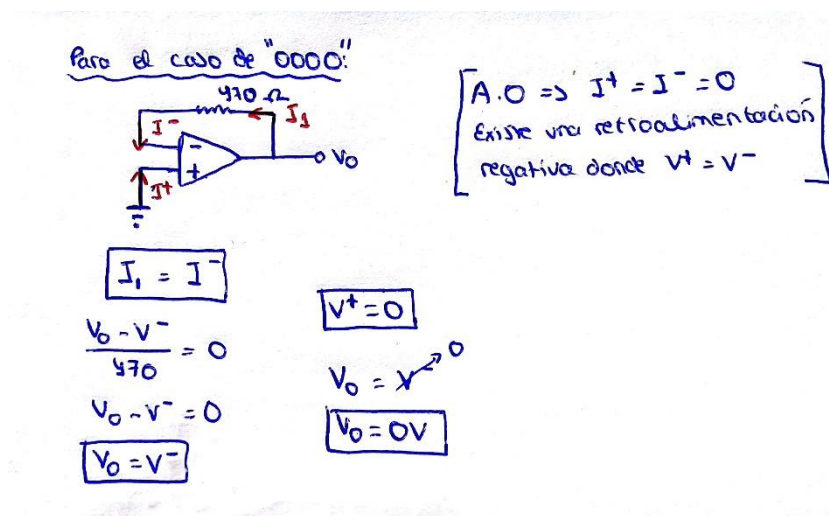 Para el caso de "0000":
470 Ω
I₁
I⁻
-
+
I⁺
V₀
[A.O => I⁺ = I⁻ = 0
Existe una retroalimentación
negativa donde V⁺ = V⁻]
I₁ = I⁻
(V₀ - V⁻)/470 = 0
V₀ - V⁻ = 0
V₀ = V⁻
V⁺ = 0
V₀ = V⁻ ↗ 0
V₀ = 0V